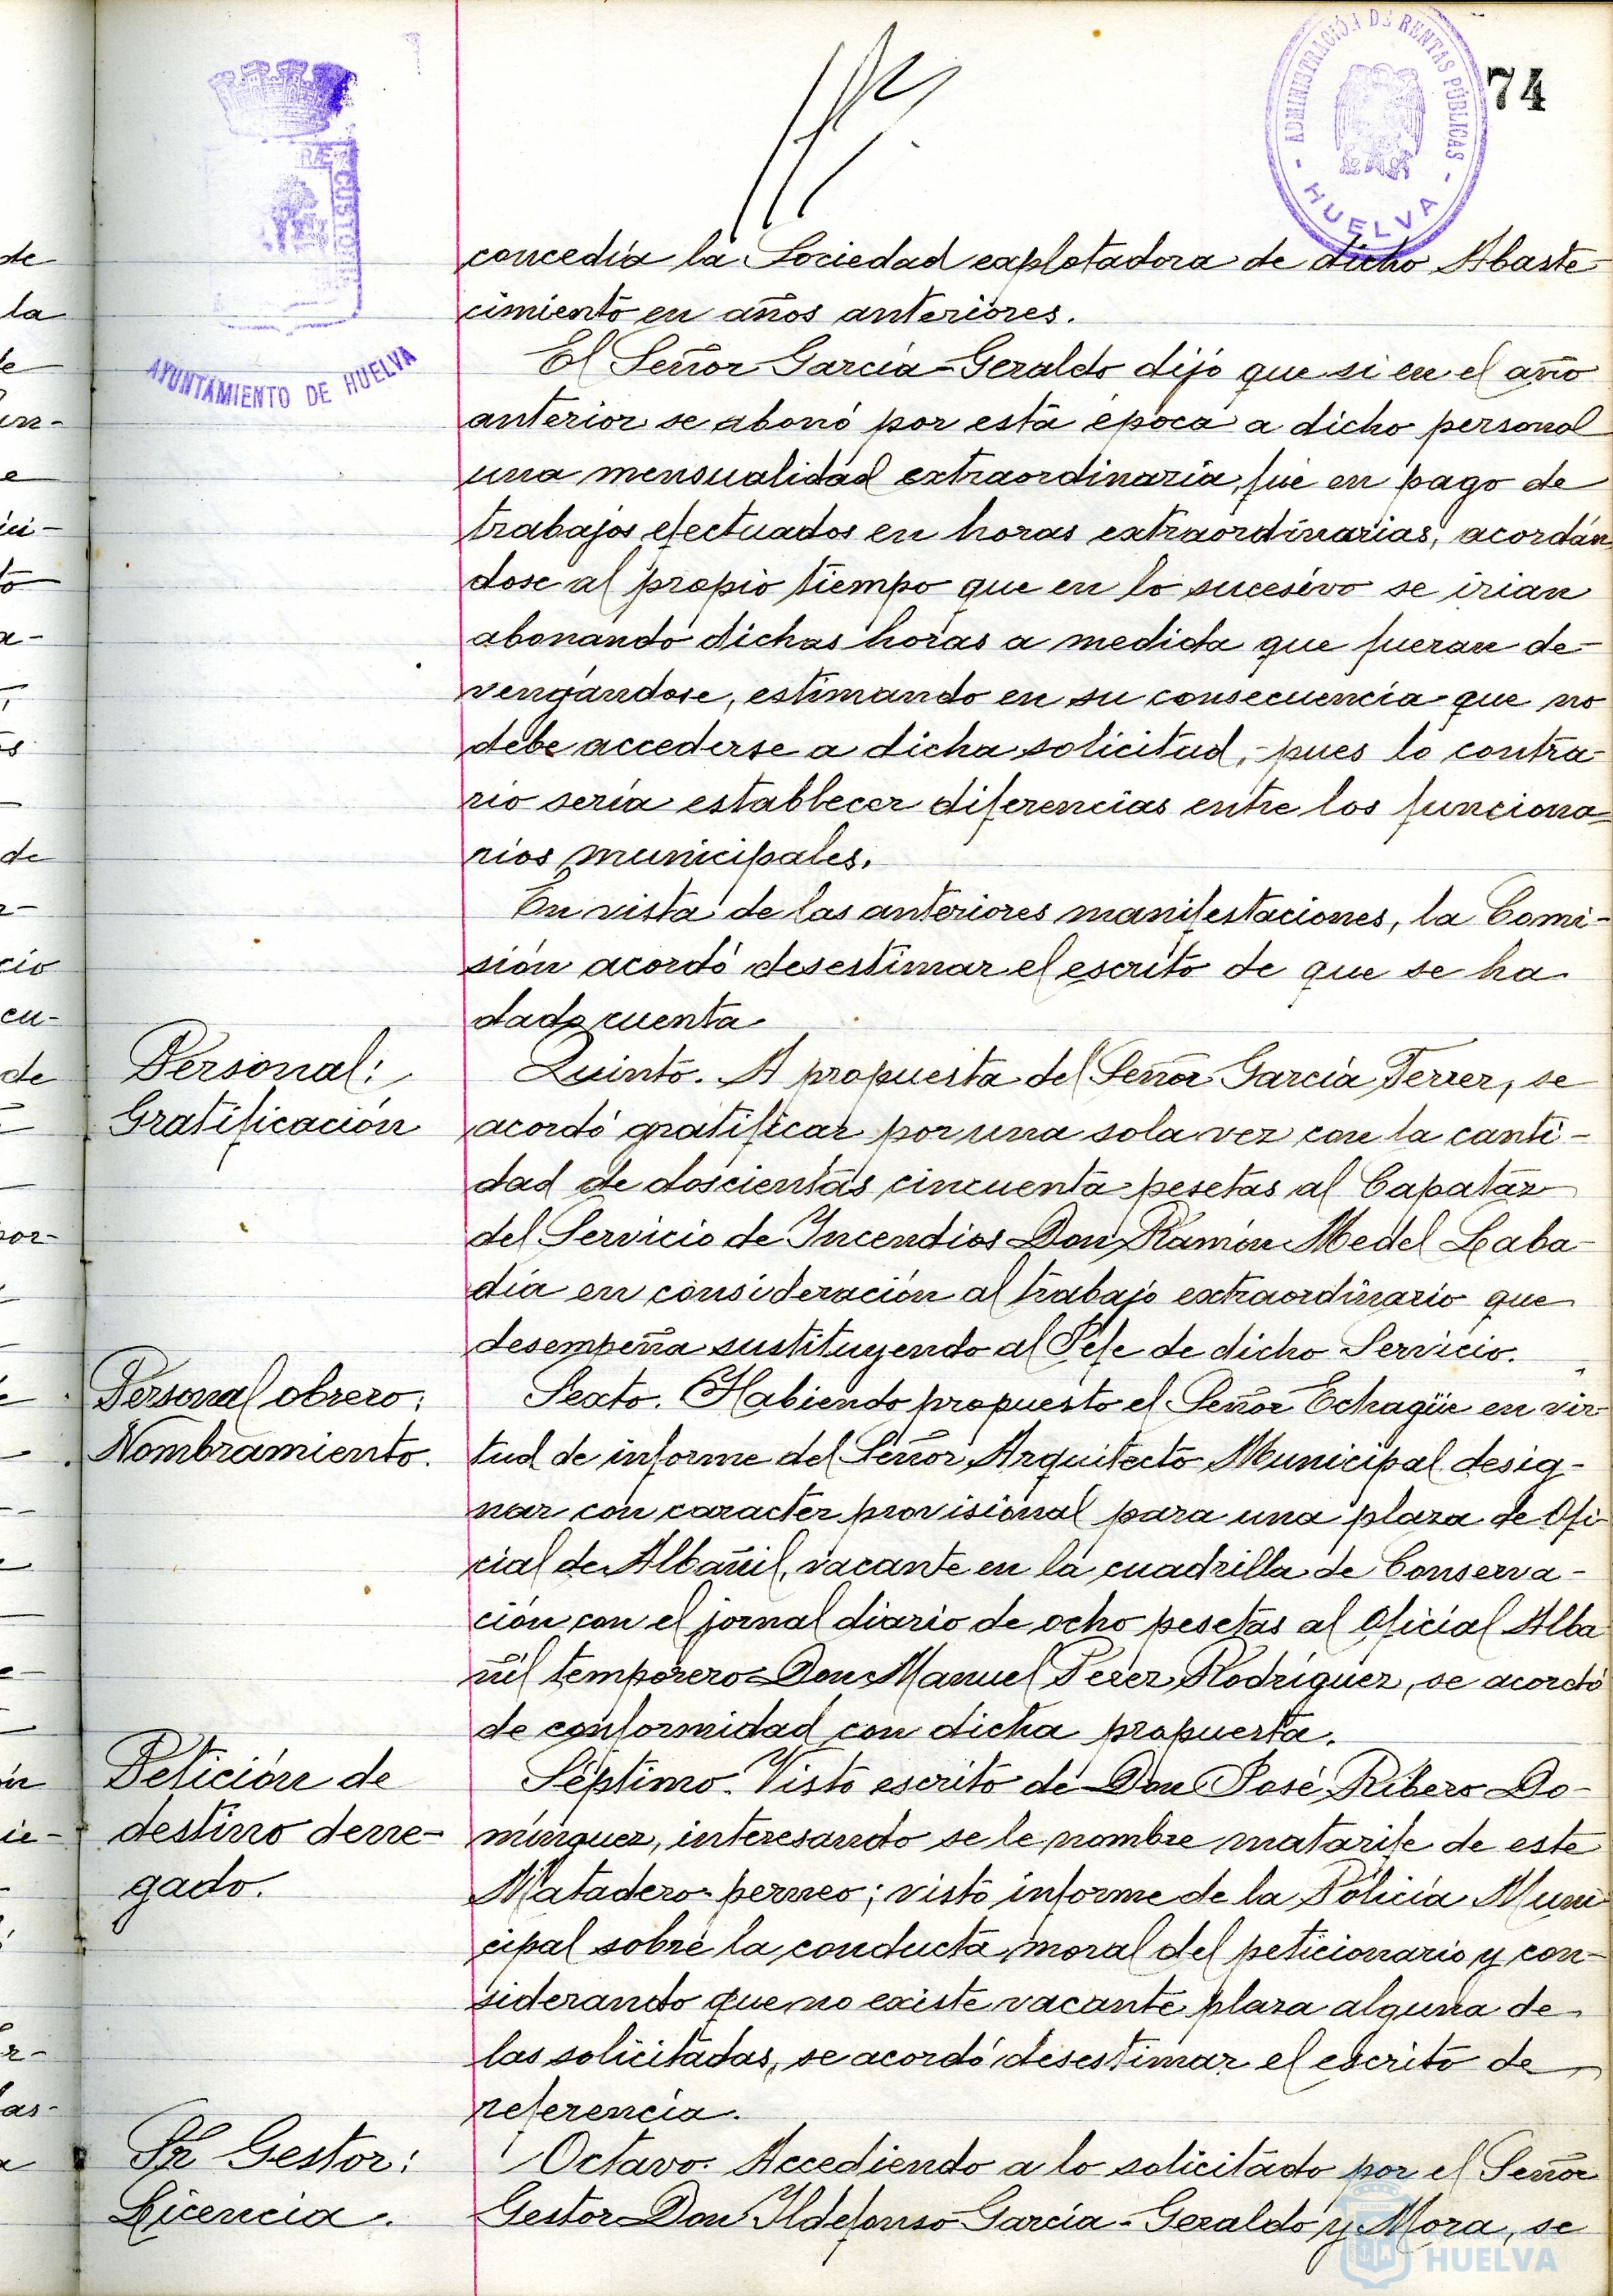 74
ADMINISTRACIÓN DE RENTAS PÚBLICAS
- HUELVA -
CUSTO
AYUNTAMIENTO DE HUELVA
concedía la Sociedad explotadora de dicho Abaste-
cimiento en años anteriores.
El Señor García-Geraldo dijo que si en el año
anterior se abonó por esta época a dicho personal
una mensualidad extraordinaria, fué en pago de
trabajos efectuados en horas extraordinarias, acordán
dose al propio tiempo que en lo sucesivo se irian
abonando dichas horas a medida que fueran de-
vengándose, estimando en su consecuencia que no
debe accederse a dicha solicitud, pues lo contra-
rio sería establecer diferencias entre los funciona=
rios municipales.
En vista de las anteriores manifestaciones, la Comi-
sión acordó desestimar el escrito de que se ha
dado cuenta
Personal:
Gratificación
Quinto. A propuesta del Señor García Ferrer, se
acordó gratificar por una sola vez con la canti-
dad de doscientas cincuenta pesetas al Capataz
del Servicio de Incendios Don Ramón Medel Laba-
día en consideración al trabajo extraordinario que
desempeña sustituyendo al Jefe de dicho Servicio.
Personal obrero:
Nombramiento.
Sexto. Habiendo propuesto el Señor Echagüe en vir
tud de informe del Señor Arquitecto Municipal desig-
nar con caracter provisional para una plaza de Ofi
cial de Albañil, vacante en la cuadrilla de Conserva-
ción con el jornal diario de ocho pesetas al Oficial Alba
ñil temporero Don Manuel Perez Rodríguez, se acordó
de conformidad con dicha propuesta.
Petición de
destino dene-
gado.
Séptimo. Visto escrito de Don José Ribero Do-
mínguez, interesando se le nombre matarife de este
Matadero perneo; visto informe de la Policía Muni
cipal sobre la conducta moral del peticionario y con-
siderando que no existe vacante plaza alguna de
las solicitadas, se acordó desestimar el escrito de
referencia.
Sr Gestor:
Licencia.
Octavo. Accediendo a lo solicitado por el Señor
Gestor Don Ildefonso García-Geraldo y Mora, se
HUELVA